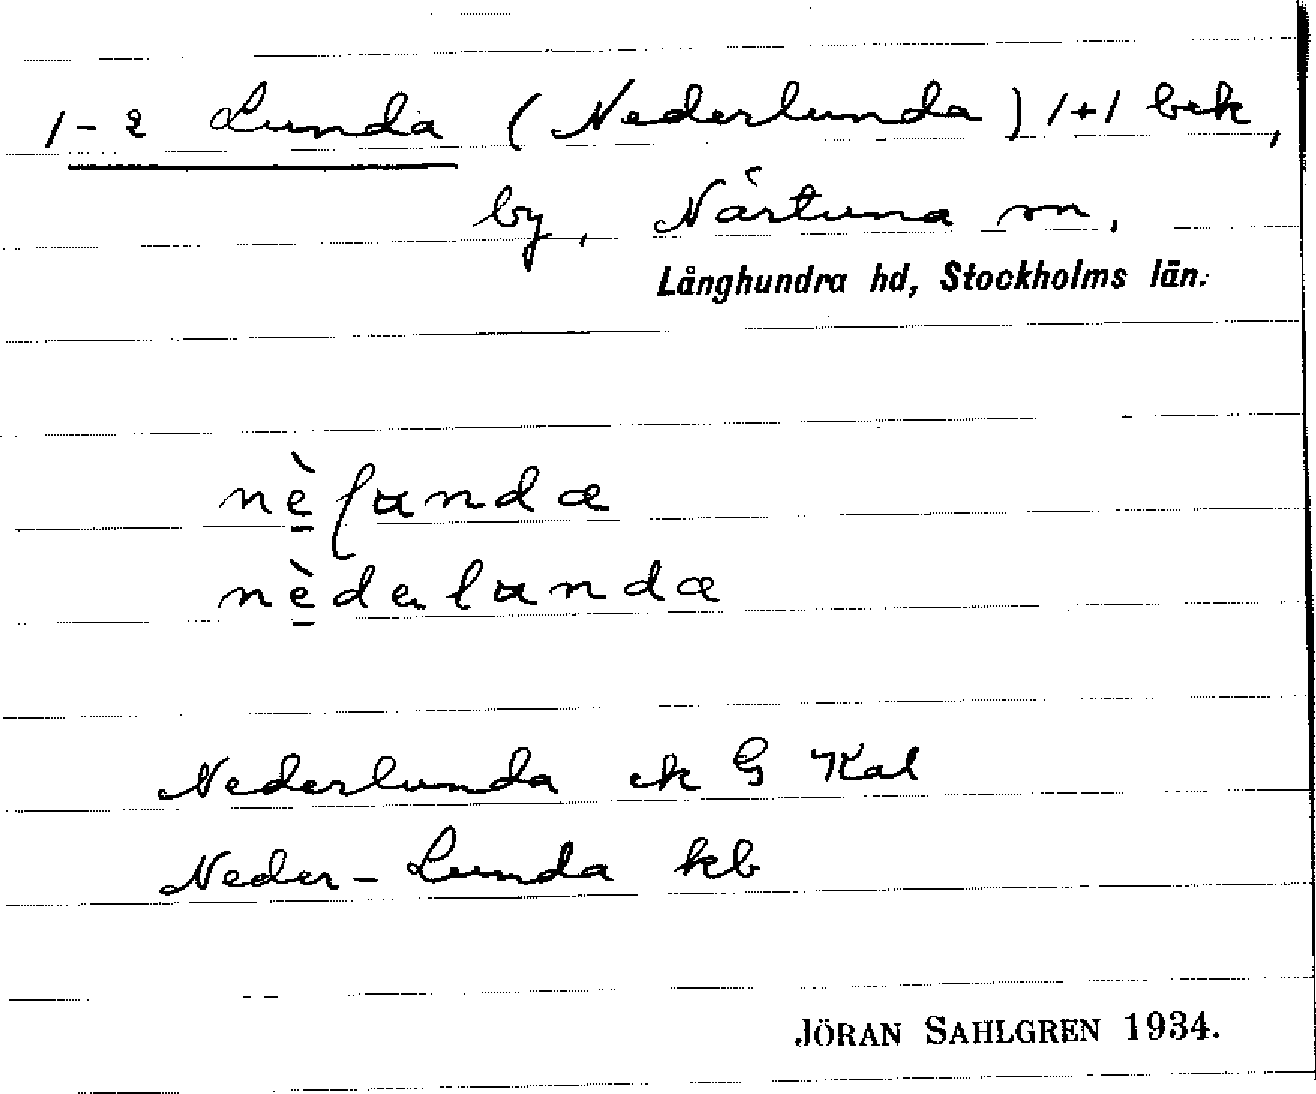 1-2 Lunda (Nederlunda) 1+1 bek,
by, Närtuna sn,
Långhundra hd, Stockholms län.
nèlunda
nèdelunda
Nederlunda ek G Kal
Neder-Lunda kb
JÖRAN SAHLGREN 1934.